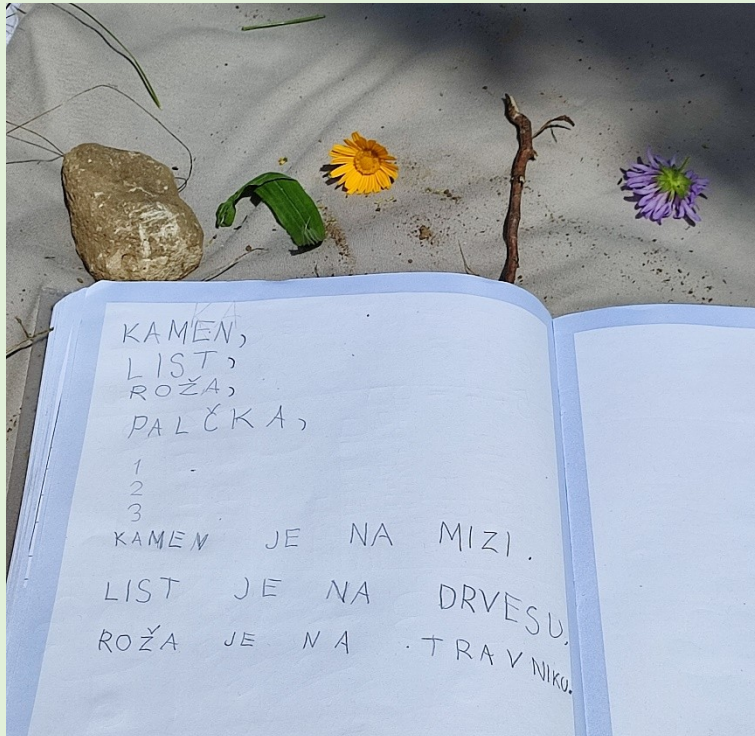 KA
KAMEN,
LIST,
ROŽA,
PALČKA,
1
2
3
KAMEN JE NA MIZI.
LIST JE NA DRVESU.
ROŽA JE NA TRAVNIKU.